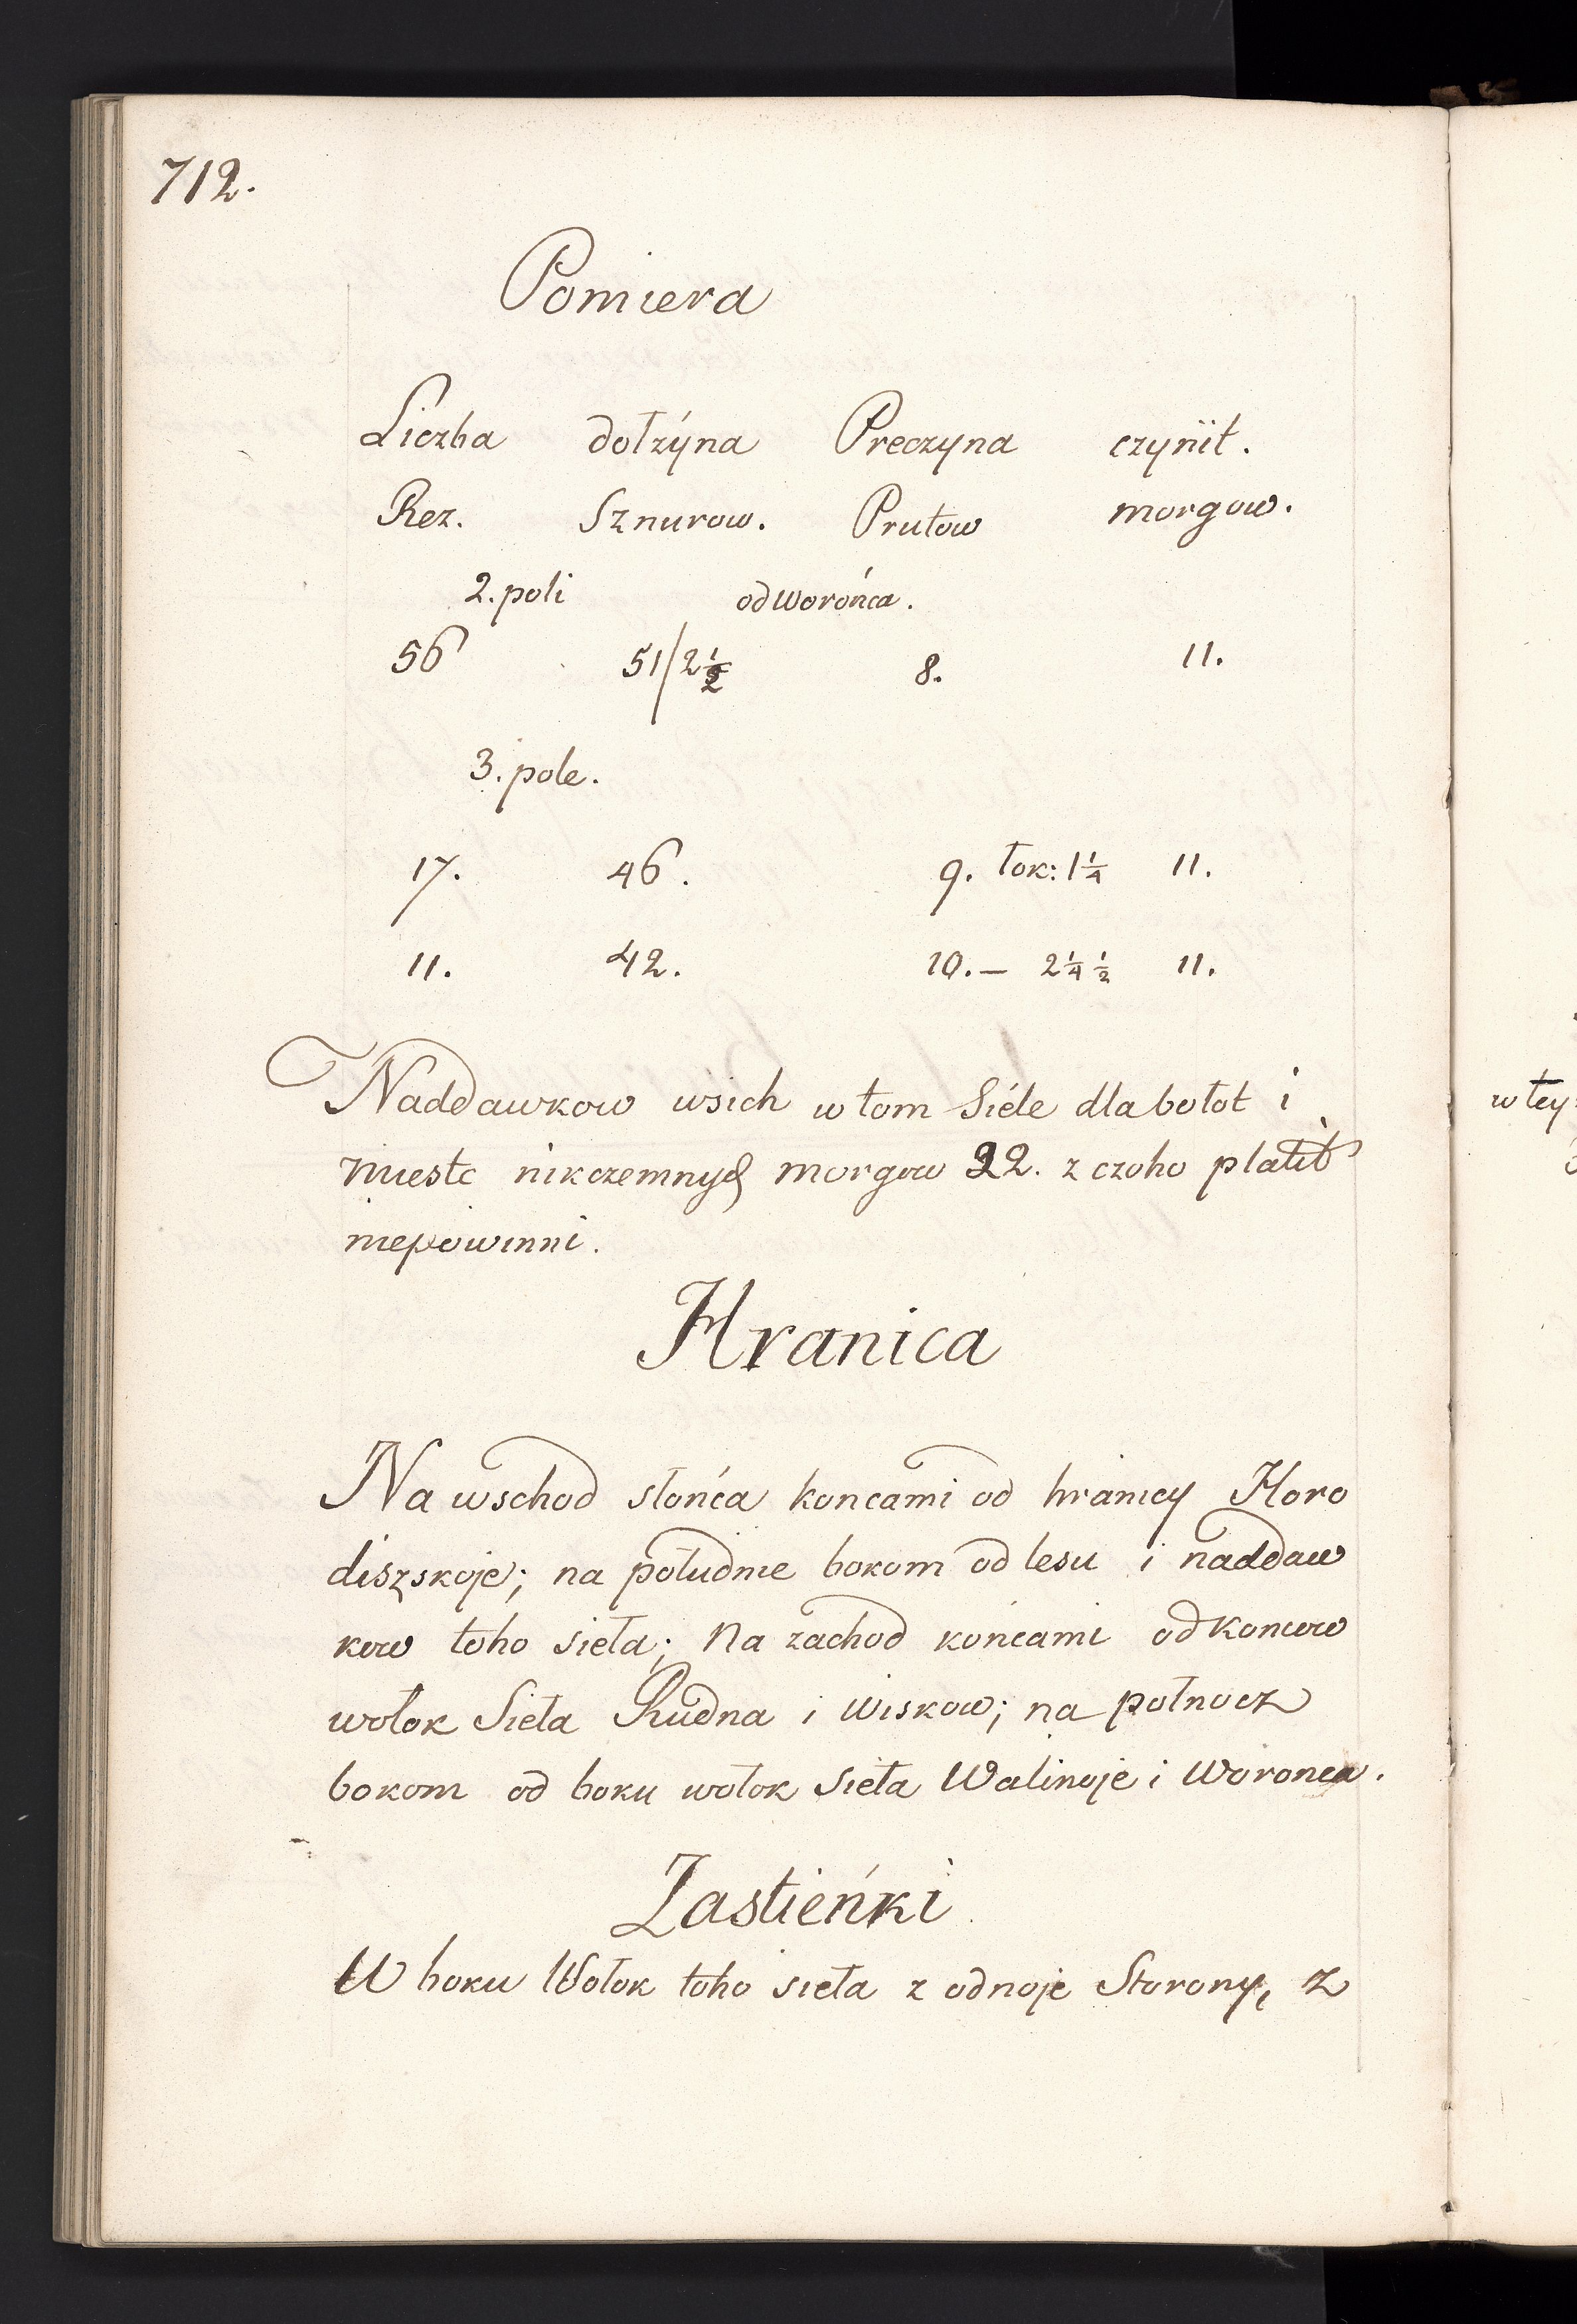 712.
Pomiera
Liczba dołżyna Preczyna czynit.
Rez. Sznurow. Prutow morgow.
2. poli od Worońca.
56 51/2 1/2 8. 11.
3. pole.
17. 46. 9. łok: 1 1/4 11.
11. 42. 10. — 2 1/4 1/2 11.
Naddawkow wsich w tom Siéle dla bołot i
miestc nikczemnych morgow 22. z czoho płatit
niepowinni.
Hranica
Na wschod słońca koncami od hranicy Horo
diszskoje; na południe bokom od lesu i naddaw
kow toho sieła; Na zachod końcami od koncow
wołok Sieła Rudna i Wiskow; na połnocz
bokom od boku wołok Sieła Walinoje i Woronca.
Zastieńki
W boku Wołok toho sieła z odnoje Storony, z
w tey